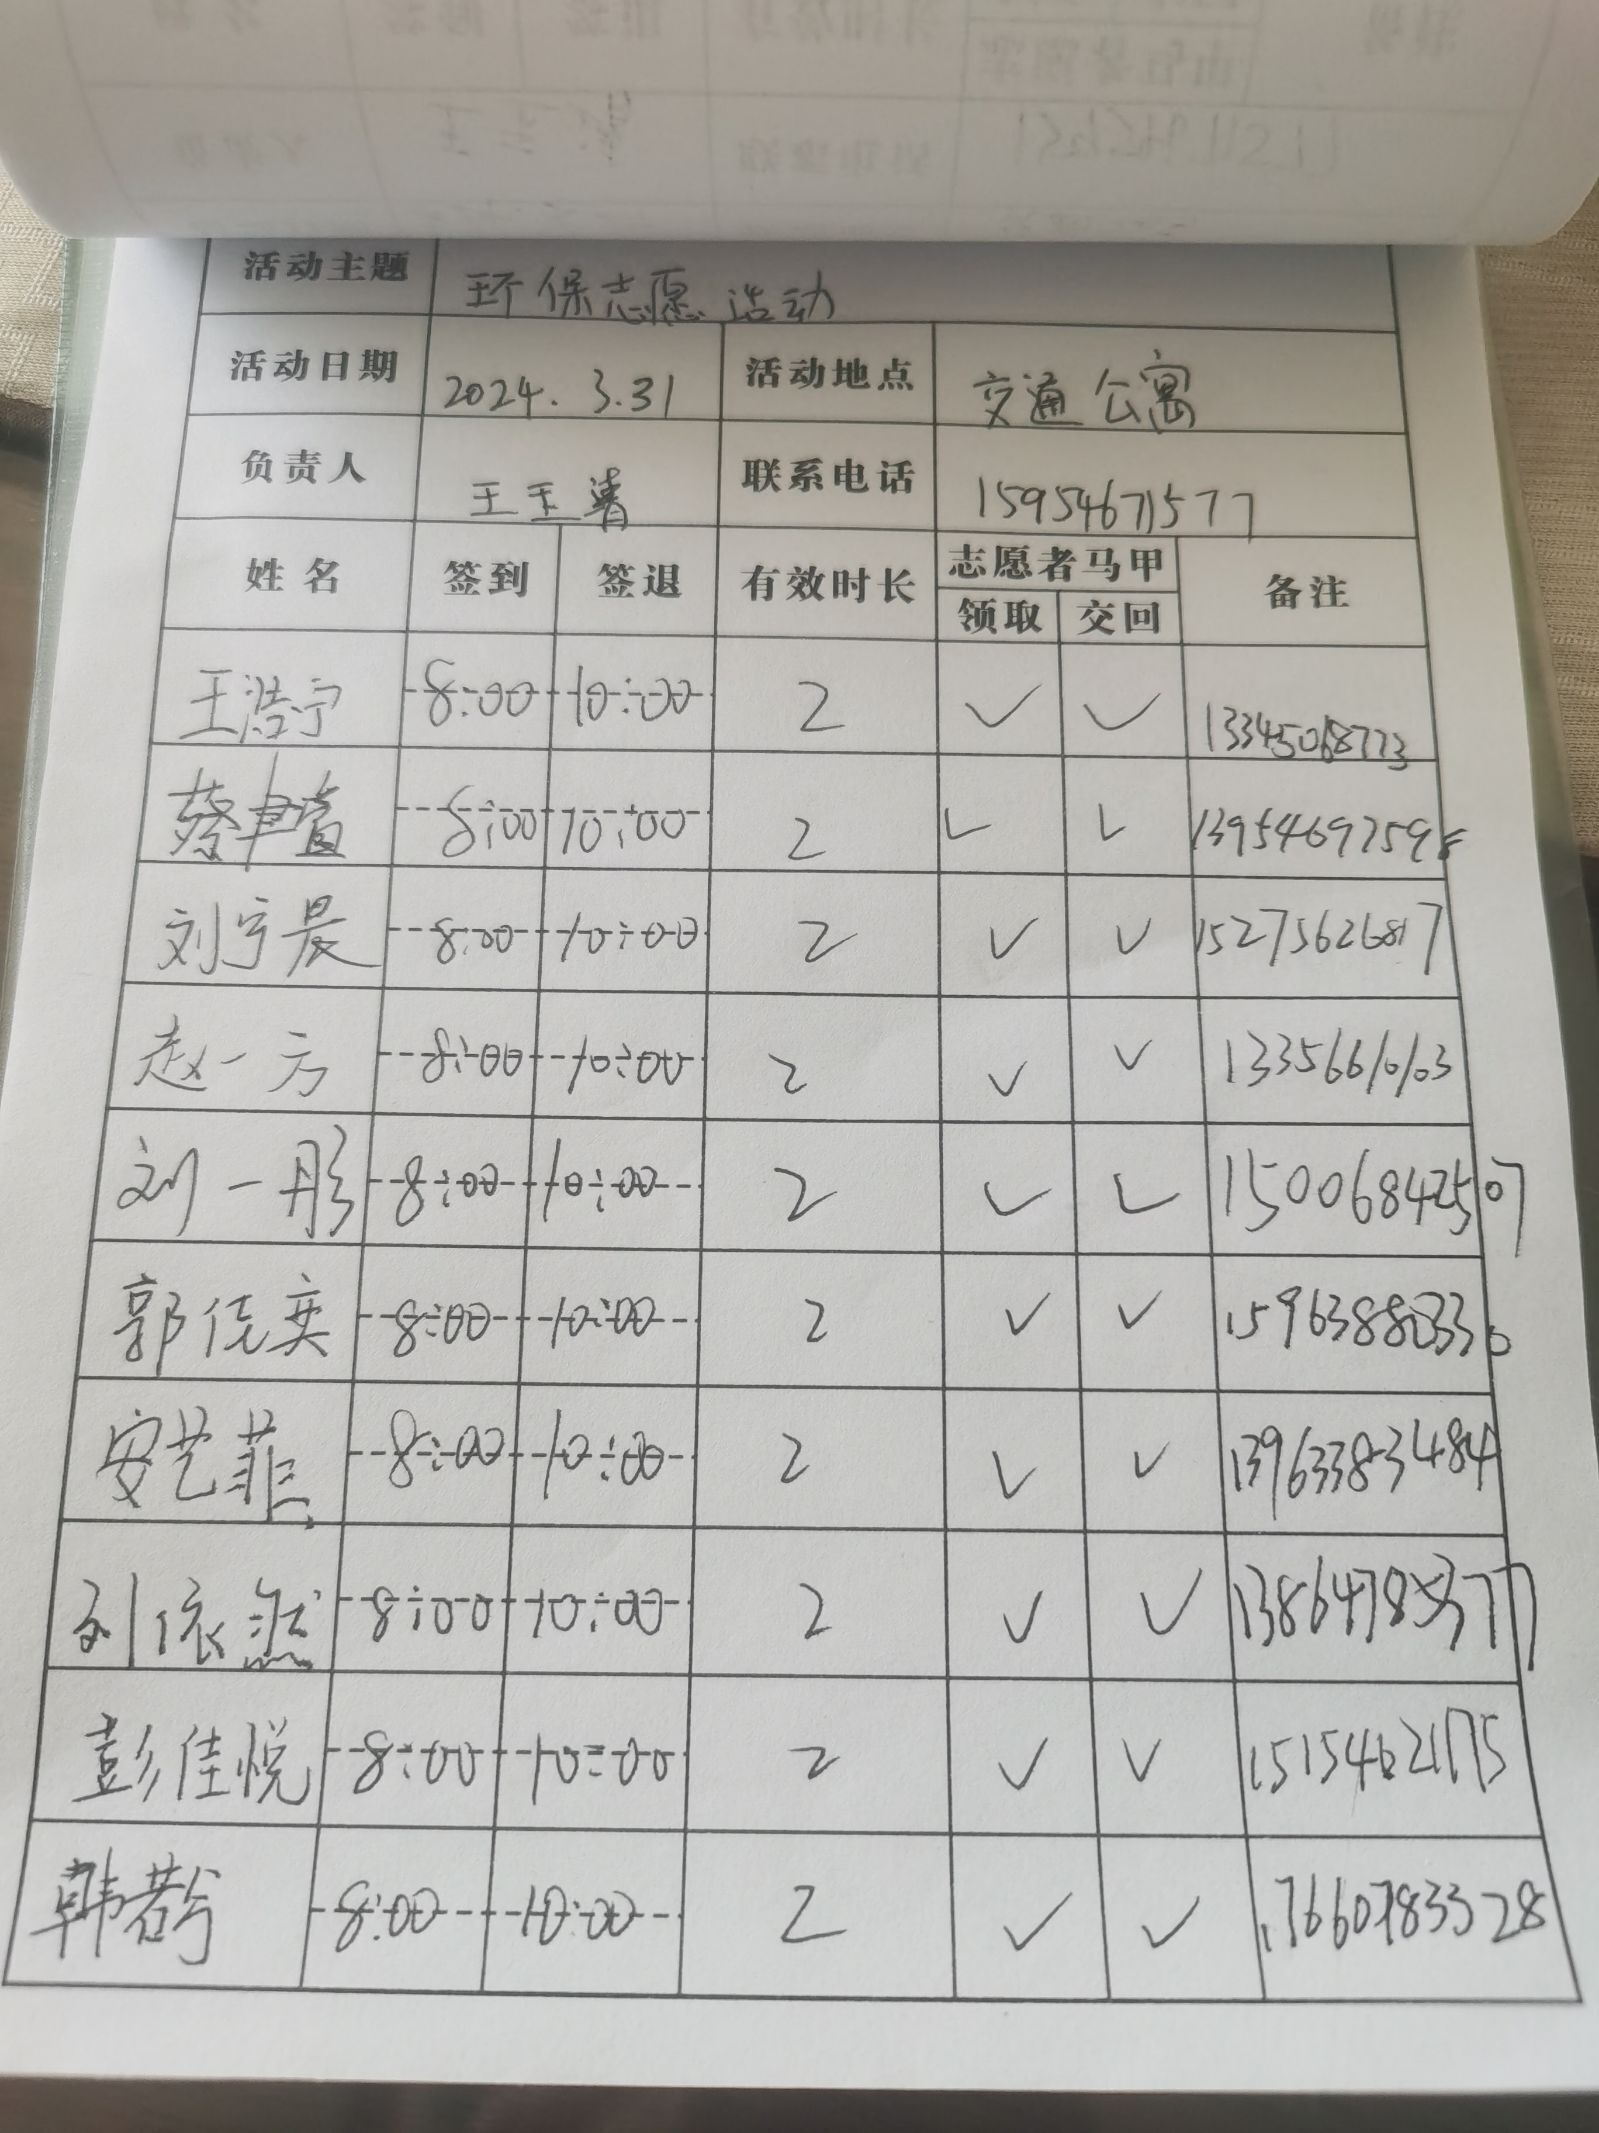 活动主题 环保志愿活动
活动日期 2024.3.31 活动地点 交通公寓
负责人 王玉清 联系电话 15954671577
姓名 签到 签退 有效时长 志愿者马甲 备注
领取 交回
王浩宁 8:00 10:00 2 ✓ ✓ 13345068773
8:00 10:00 2 ✓ ✓ 13954697598
刘宇晨 8:00 10:00 2 ✓ ✓ 15275626817
赵一方 8:00 10:00 2 ✓ ✓ 13356610103
刘一彤 8:00 10:00 2 ✓ ✓ 15006842507
郭佳奕 8:00 10:00 2 ✓ ✓
安艺菲 8:00 10:00 2 ✓ ✓ 13963383484
刘依然 8:00 10:00 2 ✓ ✓
彭佳悦 8:00 10:00 2 ✓ ✓ 15154621175
韩若兮 8:00 10:00 2 ✓ ✓ 17660783328